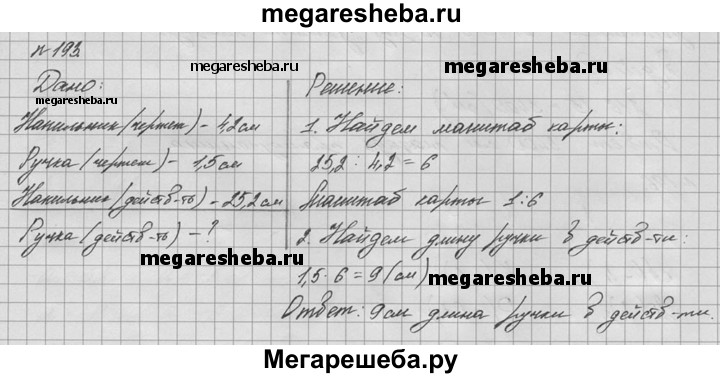 megaresheba.ru
№193.
megaresheba.ru
megaresheba.ru
Дано:
megaresheba.ru
Напильник (чертеж) - 4,2 см
Ручка (чертеж) - 1,5 см
Напильник (действ-ть) - 25,2 см
Ручка (действ-ть) - ?
Решение:
1. Найдем масштаб карты:
25,2 : 4,2 = 6
Масштаб карты 1:6
2. Найдем длину ручки в действ-ти:
1,5 · 6 = 9 (см)
Ответ: 9 см длина ручки в действ-ти.
megaresheba.ru
megaresheba.ru
Мегарешеба.ру